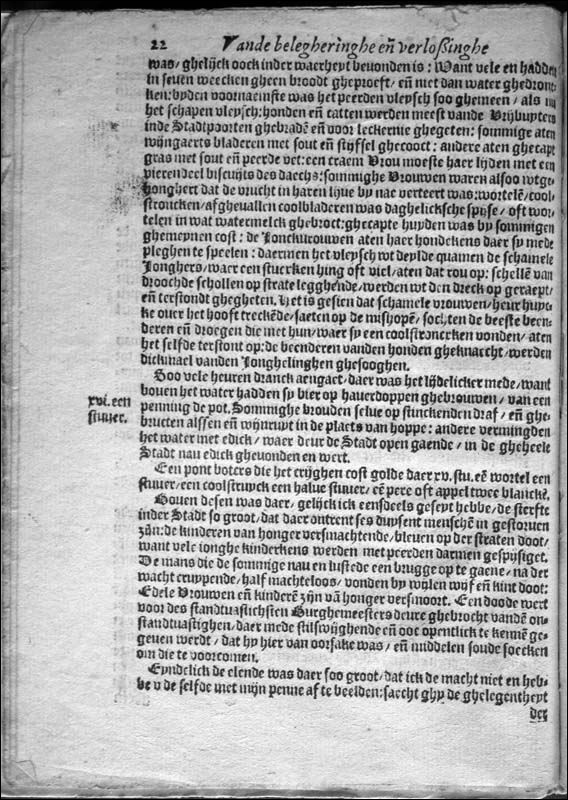 22 Vande belegheringhe eñ verloßinghe
was/ ghelijck oock inder waerheyt bevonden is: Want vele en hadden
in seven weecken gheen broodt gheproeft/ eñ niet dan water ghedronc-
ken: byden voornaemste was het peerden vleysch soo ghemeen/ als nu
het schapen vleysch: honden eñ catten werden meest vande Vrijbuyters
inde Stadtpoorten ghebradē eñ voor leckernie ghegeten: sommige aten
wijngaerts bladeren met sout eñ stijfsel ghecooct: andere aten ghecapt
gras met sout eñ peerde vet: een craem Vrou moeste haer lijden met een
vierendeel biscuijts des daechs: sommighe Vrouwen waren alsoo wtge-
honghert dat de vrucht in haren lijve by nae verteert was: wortelē/ cool-
stroncken/ afghevallen coolbladeren was daghelicksche spijse/ oft wor-
telen in wat watermelck ghebroct: ghecapte huyden was by sommigen
ghemeynen cost: de Jonckvrouwen aten haer hondekens daer sy mede
pleghen te speelen: daermen het vleysch wt deylde quamen de schamele
Jonghers/ waer een stuerken hing oft viel/ aten dat rou op: schellē van
droochde schollen op strate legghende/ werden wt den dreck op geraept/
eñ terstondt ghegheten. Het is gesien dat schamele vrouwen/ heur huyc-
ke over het hooft treckēde/ saeten op de mishopē/ sochten de beeste been-
deren eñ droegen die met hun/ waer sy een coolstroncrken vonden/ aten
het selfde terstont op: de beenderen vanden honden gheknaecht/ werden
dickmael vanden Jonghelinghen ghesooghen.
Soo vele heuren dranck aengaet/ daer was het lijdelicker mede/ want
boven het water hadden sy bier op haverdoppen ghebrouwen/ van een
xvi. een
stuver.
penning de pot. Sommighe brouden selve op stinckenden draf/ eñ ghe-
bructen alssen eñ wijnruyt in de plaets van hoppe: andere vermingden
het water met edick/ waer deur de Stadt open gaende/ in de gheheele
Stadt nau edick ghevonden en wert.
Een pont boters die het crijghen cost golde daer xv. stu. eē wortel een
stuver/ een coolstruyck een halve stuver/ eē pere oft appel twee blanckē.
Boven desen was daer/ gelijck ick eensdeels geseyt hebbe/ de sterfte
inder Stadt so groot/ dat daer ontrent ses duysent menschē in gestorven
zijn: de kinderen van honger versmachtende/ bleven op der straten doot/
want vele ionghe kinderkens werden met peerden darmen gespijsiget.
De mans die de sommige nau en lustede een brugge op te gaene/ na der
wacht cruypende/ half machteloos/ vonden by wylen wijf eñ kint doot:
Edele Vrouwen eñ kinderē zijn vā honger versmoort. Een doode wert
voor des standtvastichsten Burghemeesters deure ghebrocht vandē on-
standtvastighen/ daer mede stilswijghende eñ ooc opentlick te kennē ge-
geven werdt/ dat hy hier van oorsake was/ eñ middelen soude soecken
om die te voorcomen.
Eyndelick de elende was daer soo groot/ dat ick de macht niet en heb-
be v de selfde met mijn penne af te beelden: saecht ghy de ghelegentheyt
der